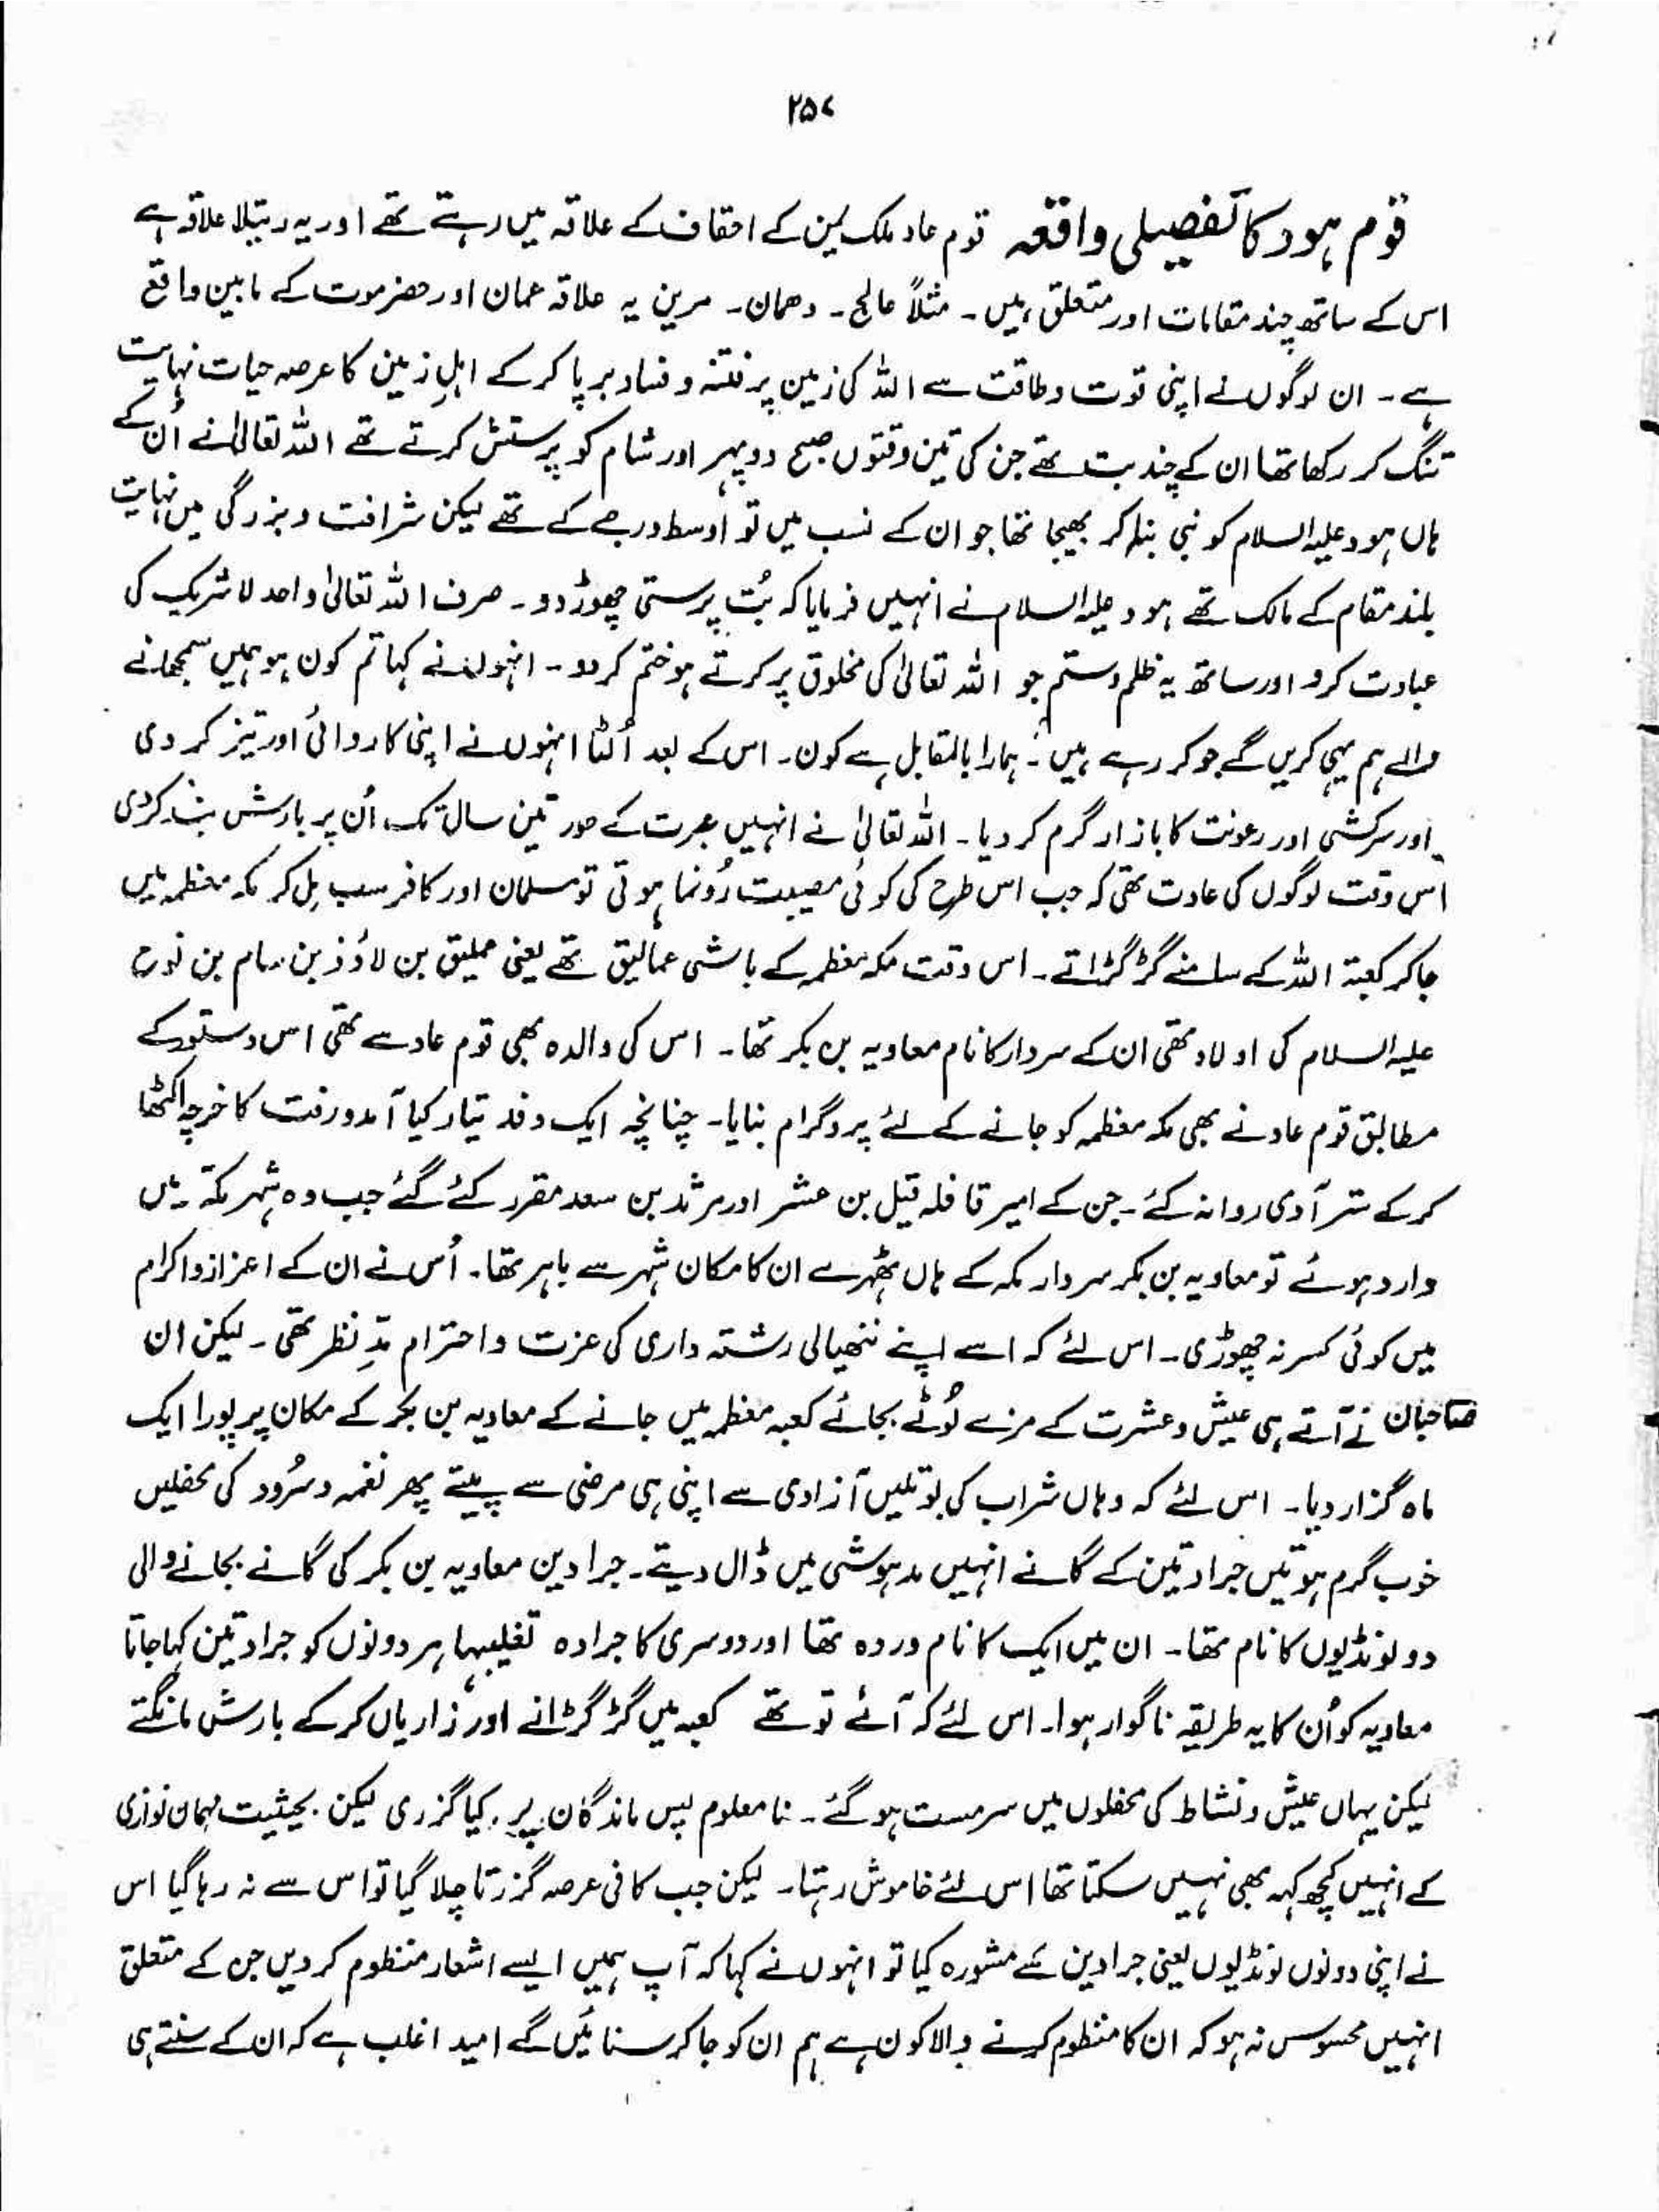 ۲۵۷
قوم ہود کا تفصیلی واقعہ قوم عاد ملک یمن کے احقاف کے علاقہ میں رہتے تھے اور یہ ریتلا علاقہ ہے
اس کے ساتھ چند مقامات اور متعلق ہیں۔ مثلاً عالج۔ دھمان۔ مرین یہ علاقہ عمان اور حضرموت کے مابین واقع
ہے۔ ان لوگوں نے اپنی قوت و طاقت سے اللہ کی زمین پر فتنہ و فساد برپا کر کے اہلِ زمین کا عرصہ حیات نہایت
تنگ کر رکھا تھا ان کے چند بت تھے جن کی تین وقتوں صبح دوپہر اور شام کو پرستش کرتے تھے اللہ تعالیٰ نے اُن کے
ہاں ہود علیہ السلام کو نبی بنا کر بھیجا تھا جو ان کے نسب میں تو اوسط درجے کے تھے لیکن شرافت و بزرگی میں نہایت
بلند مقام کے مالک تھے ہود علیہ السلام نے انہیں فرمایا کہ بُت پرستی چھوڑ دو۔ صرف اللہ تعالیٰ واحد لا شریک کی
عبادت کرو اور ساتھ یہ ظلم و ستم جو اللہ تعالیٰ کی مخلوق پر کرتے ہو ختم کر دو۔ انہوں نے کہا تم کون ہو ہمیں سمجھانے
والے ہم یہی کریں گے جو کر رہے ہیں۔ ہمارا بالمقابل ہے کون۔ اس کے بعد اُلٹا انہوں نے اپنی کاروائی اور تیز کر دی
اور سرکشی اور رعونت کا بازار گرم کر دیا۔ اللہ تعالیٰ نے انہیں عبرت کے طور تین سال تک اُن پر بارش بند کر دی
اس وقت لوگوں کی عادت تھی کہ جب اس طرح کی کوئی مصیبت رُونما ہوتی تو مسلمان اور کافر سب مِل کر مکہ معظمہ میں
جا کر کعبۃ اللہ کے سامنے گڑگڑاتے۔ اس وقت مکہ معظمہ کے باشی عمالیق تھے یعنی عملیق بن لاؤذ بن سام بن نوح
علیہ السلام کی اولاد تھی ان کے سردار کا نام معاویہ بن بکر تھا۔ اس کی والدہ بھی قوم عاد سے تھی اس دستور کے
مطابق قوم عاد نے بھی مکہ معظمہ کو جانے کے لئے پروگرام بنایا۔ چنانچہ ایک وفد تیار کیا آمدورفت کا خرچہ اکٹھا
کر کے ستر آدمی روانہ کئے۔ جن کے امیر قافلہ قیل بن عشر اور مرثد بن سعد مقرر کئے گئے جب وہ شہر مکۃ میں
وارد ہوئے تو معاویہ بن بکر سردار مکہ کے ہاں ٹھہرے ان کا مکان شہر سے باہر تھا۔ اُس نے ان کے اعزاز و اکرام
میں کوئی کسر نہ چھوڑی۔ اس لئے کہ اسے اپنے ننھیالی رشتہ داری کی عزت و احترام مدِّ نظر تھی۔ لیکن ان
صاحبان نے آتے ہی عیش و عشرت کے مزے لُوٹے بجائے کعبہ معظمہ میں جانے کے معاویہ بن بکر کے مکان پر پورا ایک
ماہ گزار دیا۔ اس لئے کہ وہاں شراب کی بوتلیں آزادی سے اپنی ہی مرضی سے پیتے پھر نغمہ و سُرود کی محفلیں
خوب گرم ہوتیں جرادتین کے گانے انہیں مدہوشی میں ڈال دیتے۔ جرادین معاویہ بن بکر کی گانے بجانے والی
دو لونڈیوں کا نام تھا۔ ان میں ایک کا نام وردہ تھا اور دوسری کا جرادہ تغلیبہا ہر دونوں کو جرادتین کہا جاتا
معاویہ کو اُن کا یہ طریقہ ناگوار ہوا۔ اس لئے کہ آئے تو تھے کعبہ میں گڑگڑانے اور زاریاں کر کے بارش مانگتے
لیکن یہاں عیش و نشاط کی محفلوں میں سرمست ہو گئے۔ نامعلوم پس ماندگان پر کیا گزری لیکن بحیثیت مہمان نوازی
کے انہیں کچھ کہہ بھی نہیں سکتا تھا اس لئے خاموش رہتا۔ لیکن جب کافی عرصہ گزرتا چلا گیا تو اس سے نہ رہا گیا اس
نے اپنی دونوں لونڈیوں یعنی جرادین سے مشورہ کیا تو انہوں نے کہا کہ آپ ہمیں ایسے اشعار منظوم کر دیں جن کے متعلق
انہیں محسوس نہ ہو کہ ان کا منظوم کرنے والا کون ہے ہم ان کو جا کر سنائیں گے امید اغلب ہے کہ ان کے سنتے ہی